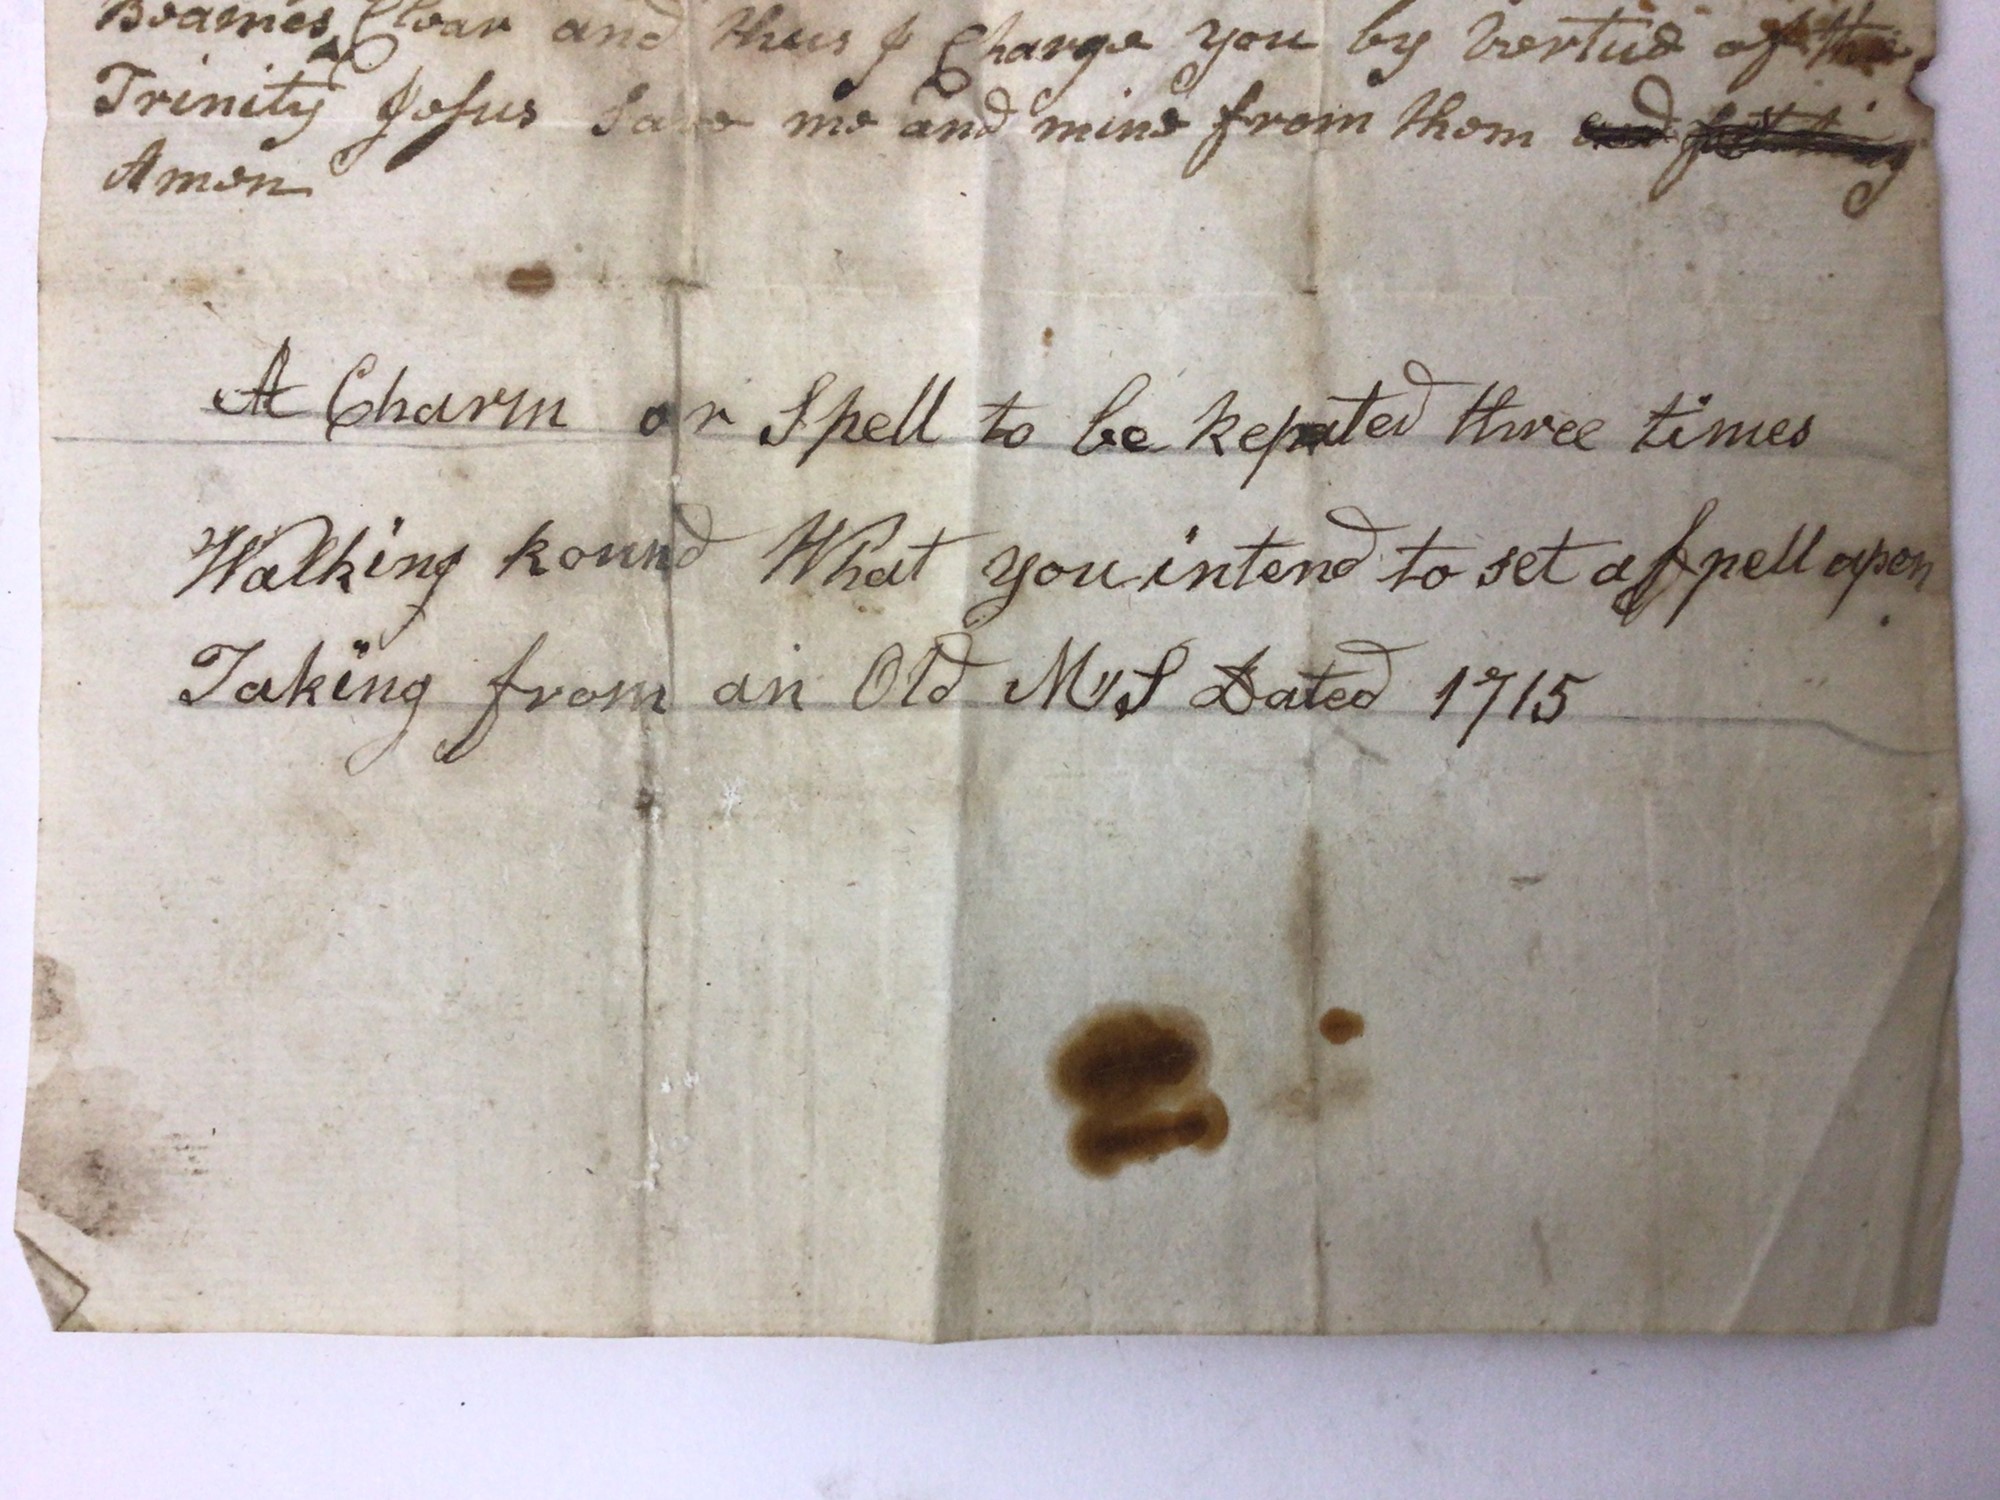 Beames Clear and thus I Charge you by Vertue of the
Trinity Jesus Save me and mine from them and
Amen
A Charm or Spell to be Repeated three times
Walking Round What you intend to set a Spell apon
Taking from an Old M"S Dated 1715